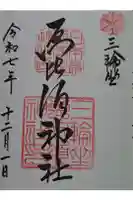 三輪坐
恵比須神社
令和七年
十二月一日